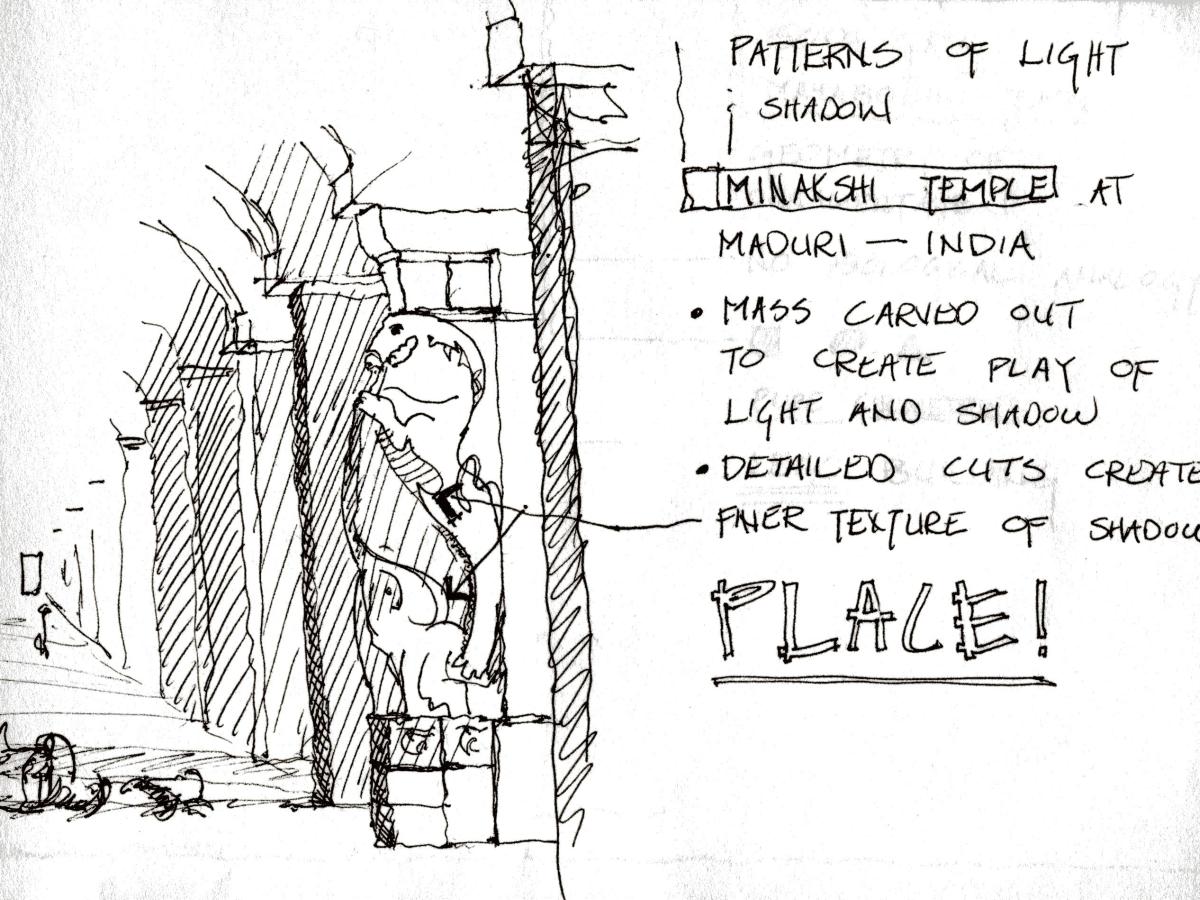 PATTERNS OF LIGHT
& SHADOW
MINAKSHI TEMPLE AT
MADURI — INDIA
• MASS CARVED OUT
TO CREATE PLAY OF
LIGHT AND SHADOW
• DETAILED CUTS CREATE
FINER TEXTURE OF SHADOW
PLACE!